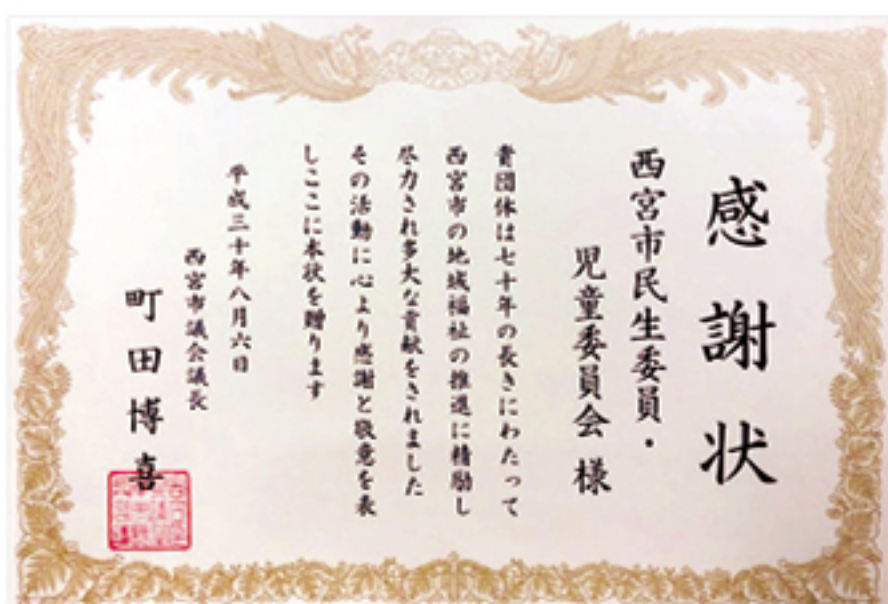 感謝状
西宮市民生委員・
児童委員会様
貴団体は七十年の長きにわたって
西宮市の地域福祉の推進に精励し
尽力され多大な貢献をされました
その活動に心より感謝と敬意を表
しここに本状を贈ります
平成三十年八月六日
西宮市議会議長
町田博喜